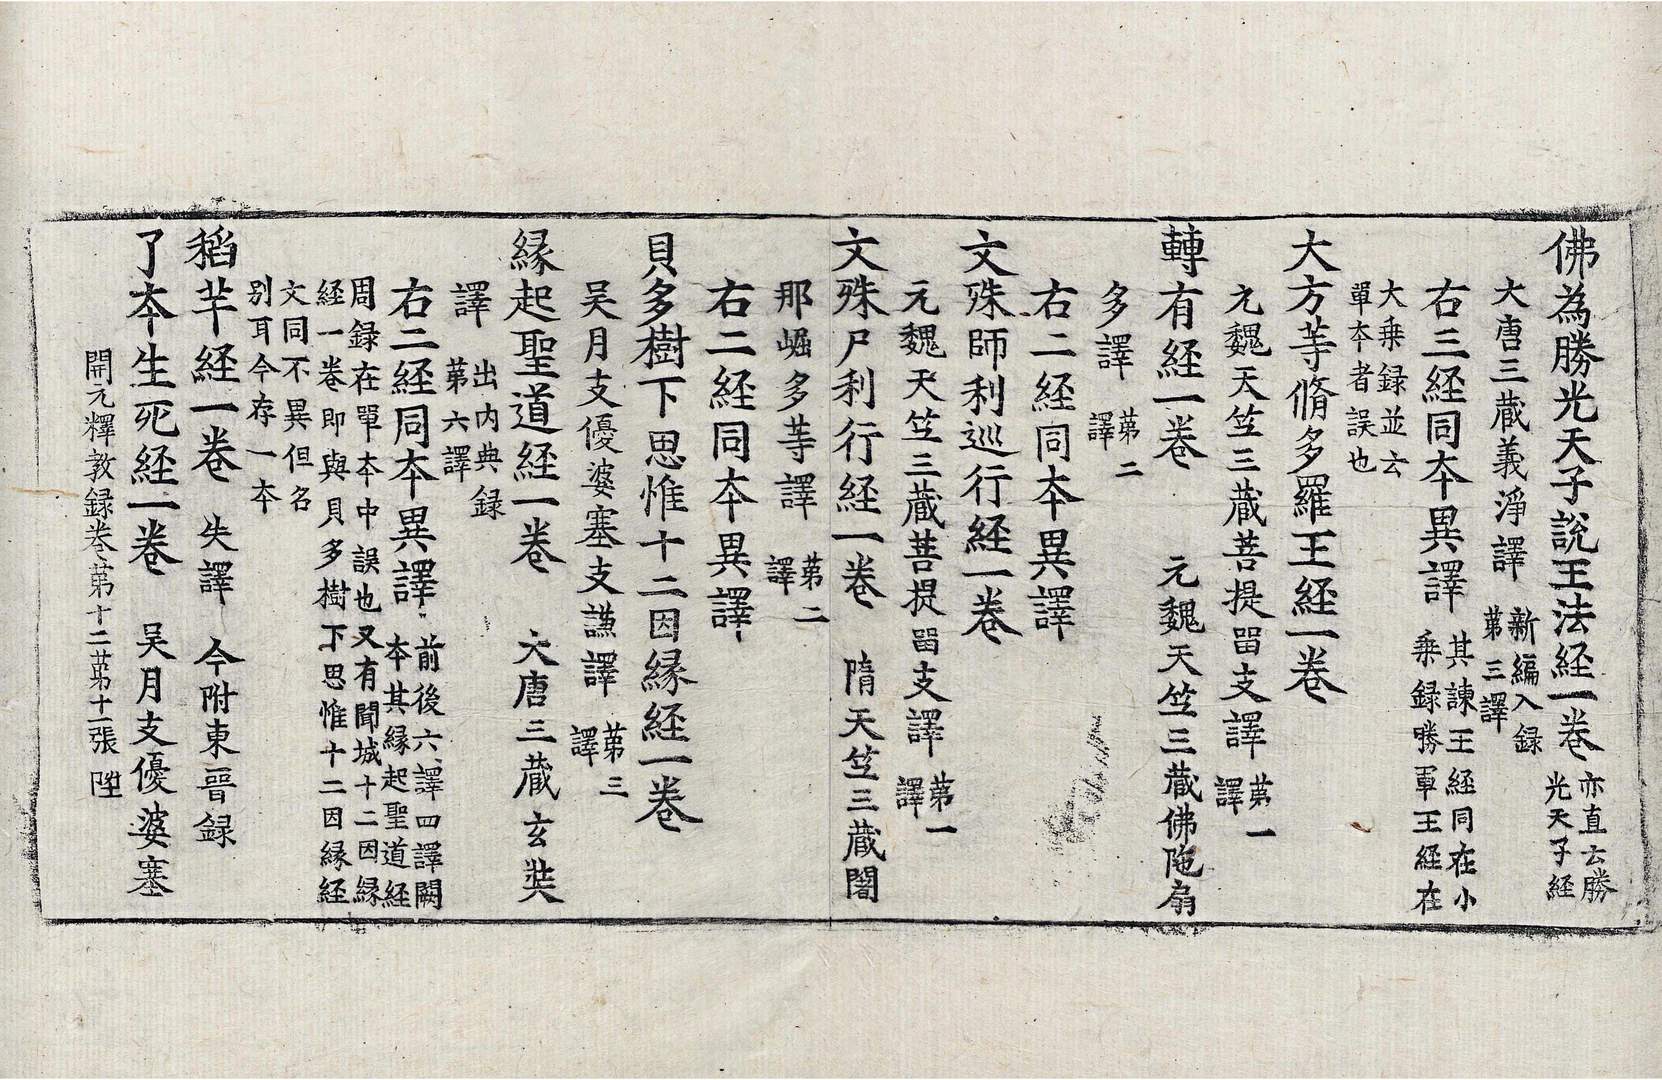 佛為勝光天子說王法経一卷 亦直云勝光天子経
大唐三藏義淨譯 新編入録第三譯
右三経同夲異譯 其諫王経同在小乗録勝軍王経在
大乗録並云單夲者誤也
大方等脩多羅王経一卷
元魏天竺三藏菩提畱支譯 第一譯
轉有経一卷 元魏天竺三藏佛陁扇
多譯 第二譯
右二経同夲異譯
文殊師利巡行経一卷
元魏天竺三藏菩提畱支譯 第一譯
文殊尸利行経一卷 隋天竺三藏闍
那崛多等譯 第二譯
右二経同夲異譯
貝多樹下思惟十二因縁経一卷
吴月支優婆塞支謙譯 第三譯
縁起聖道経一卷 大唐三藏玄奘
譯 出内典録第六譯
右二経同夲異譯 前後六譯四譯闕夲其縁起聖道経
周録在單夲中誤也又有聞城十二因縁経一卷即與貝多樹下思惟十二因縁経
文同不異但名别耳今存一夲
稻芉経一卷 失譯 今附東晉録
了夲生死経一卷 吴月支優婆塞
開元釋教録卷第十二 第十一張 陞